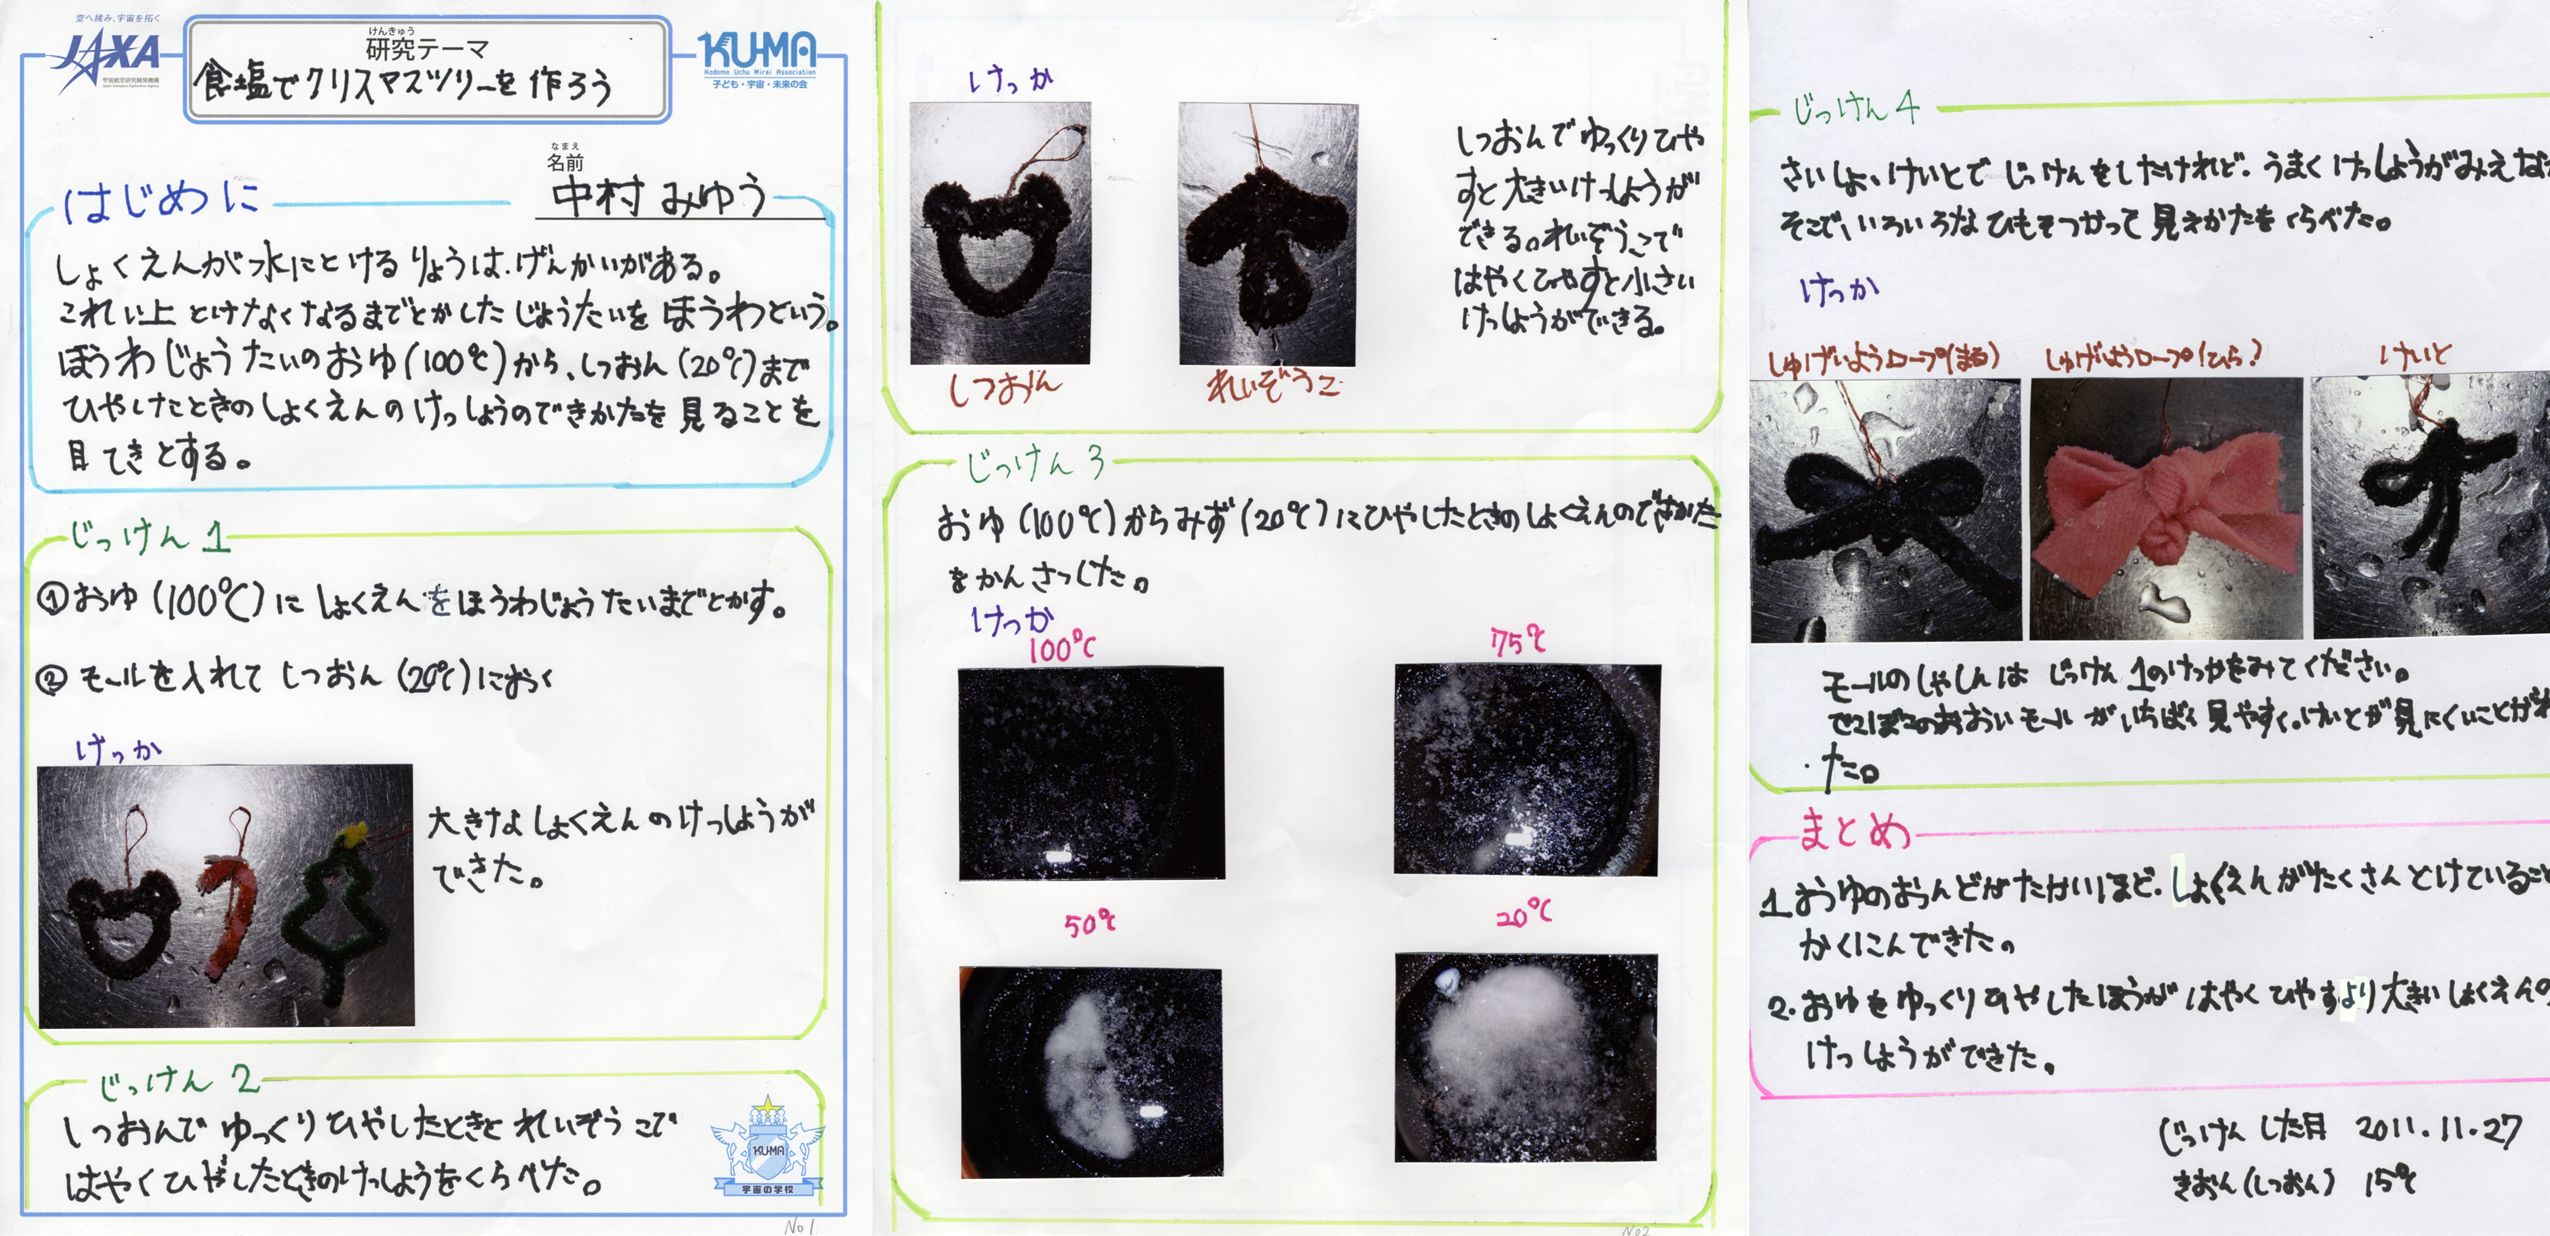 空へ挑み、宇宙を拓く
JAXA
宇宙航空研究開発機構
Japan Aerospace Exploration Agency
けんきゅう
研究テーマ
食塩でクリスマスツリーを作ろう
KU-MA
Kodomo Uchu Mirai Association
子ども・宇宙・未来の会
なまえ
名前
中村 みゆう
はじめに
しょくえんが水にとけるりょうは、げんかいがある。
これい上とけなくなるまでとかしたじょうたいをほうわという。
ほうわじょうたいのおゆ(100℃)から、しつおん(20℃)まで
ひやしたときのしょくえんのけっしょうのできかたを見ることを
目てきとする。
じっけん1
①おゆ(100℃)にしょくえんをほうわじょうたいまでとかす。
② モールを入れてしつおん(20℃)におく
けっか
大きなしょくえんのけっしょうが
できた。
じっけん2
しつおんでゆっくりひやしたときとれいぞうこで
はやくひやしたときのけっしょうをくらべた。
KU-MA
宇宙の学校
No1
けっか
しつおん
れいぞうこ
しつおんでゆっくりひや
すと大きいけっしょうが
できる。れいぞうこで
はやくひやすと小さい
けっしょうができる。
じっけん3
おゆ(100℃)からみず(20℃)にひやしたときのしょくえんのできかた
をかんさつした。
けっか
100℃
75℃
50℃
20℃
No2
じっけん4
さいしょ、けいとでじっけんをしたけれど、うまくけっしょうがみえな
そこで、いろいろなひもをつかって見えかたをくらべた。
けっか
しゅげいようロープ(まる)
しゅげいようロープ(ひら)
けいと
モールのしゃしんはじっけん1のけっかをみてください。
でこぼこのおおいモールがいちばん見やすく、けいとが見にくいことがわ
た。
まとめ
1. おゆのおんどがたかいほど、しょくえんがたくさんとけていること
かくにんできた。
2. おゆをゆっくりひやしたほうがはやくひやすより大きいしょくえんの
けっしょうができた。
じっけんした日 2011.11.27
きおん(しつおん) 15℃